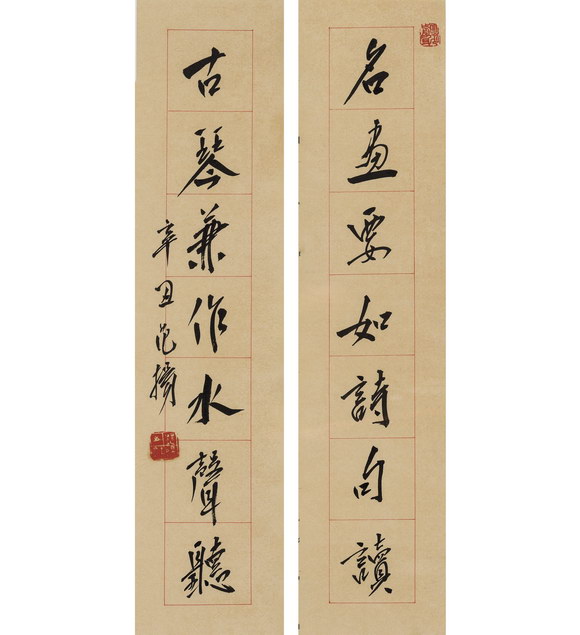 名畫要如詩句讀
古琴兼作水聲聽
辛丑